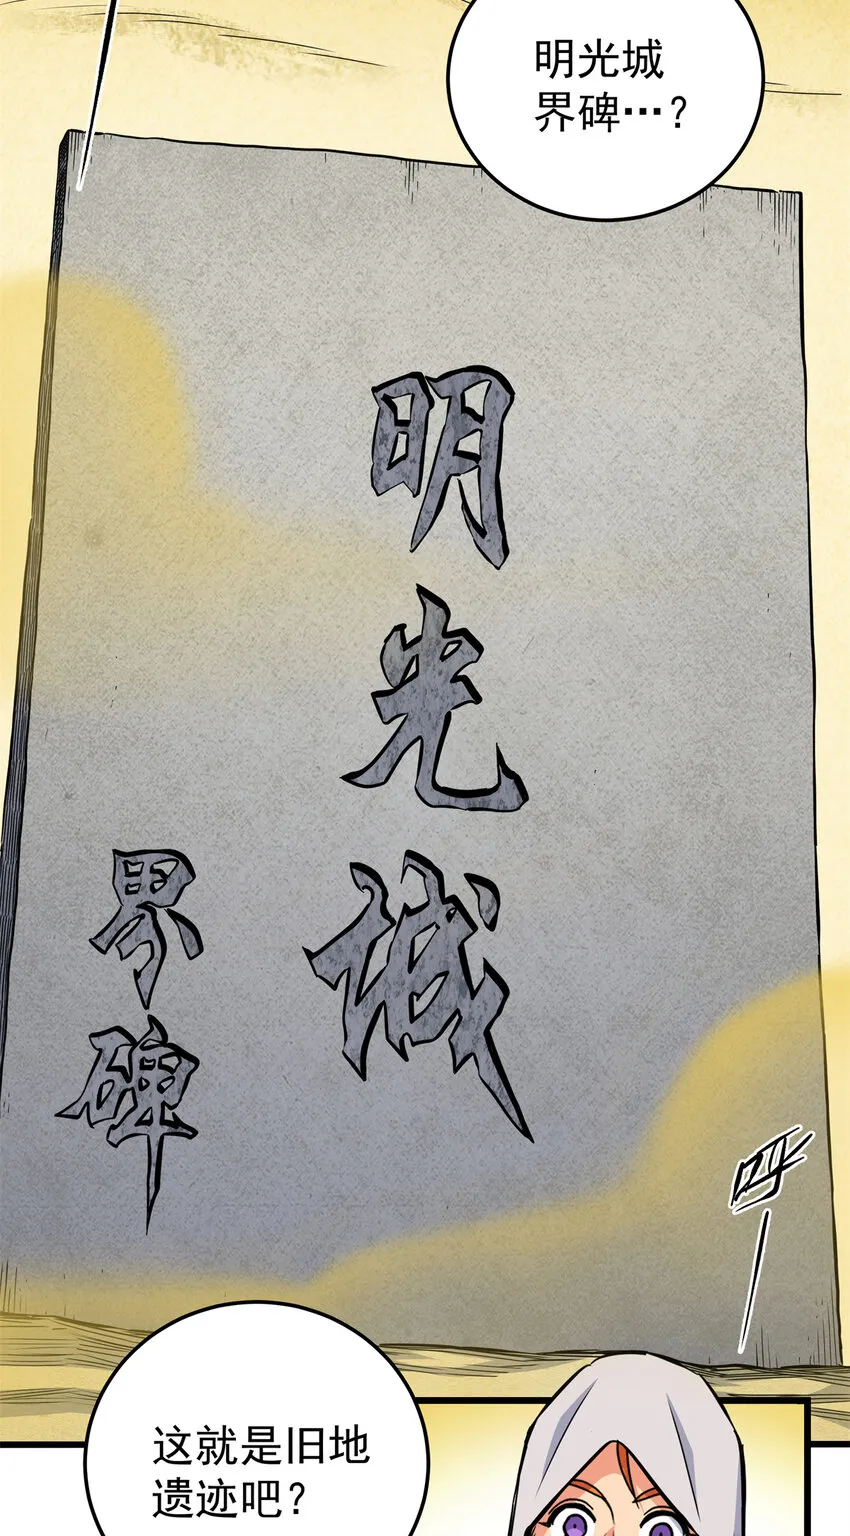 明光城
界碑…？
明光城
界碑
呼
这就是旧地
遗迹吧？